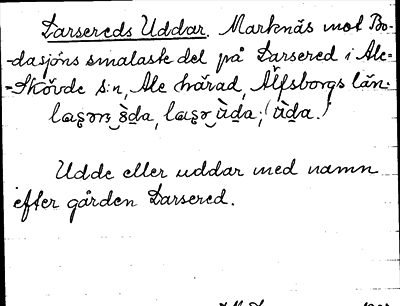 Larsereds Uddar. Marknäs mot Bo-
-dasjöns smalaste del på Larsered i Ale-
-Skövde s:n, Ale härad, Älfsborgs län.
Udde eller uddar med namn
efter gården Larsered.